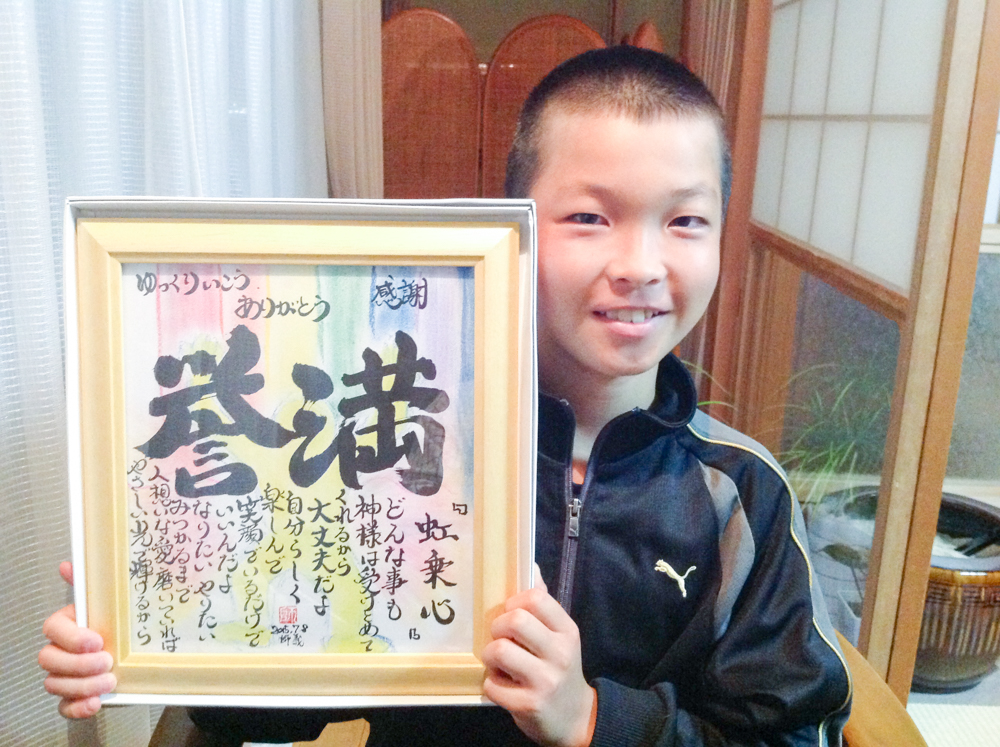 感謝
ゆっくりいこう
ありがとう
満誉
『虹乗心』
どんな事も
神様は受けとめて
くれるから
大丈夫だよ
自分らしく
楽しんで
笑顔でいるだけで
いいんだよ
なりたい やりたい
みつかるまで
人想いな愛磨いていれば
やさしい光で輝けるから
2015.7.8